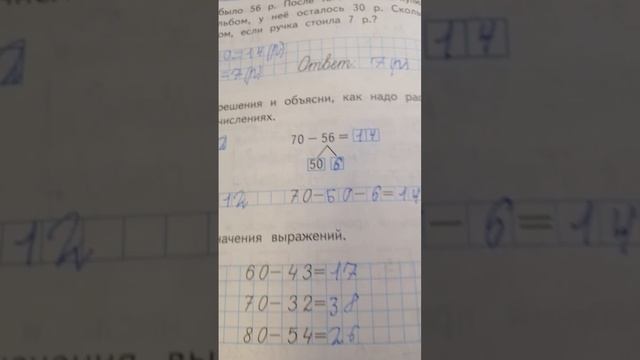 было 56 р. После
льбом, у неё осталось 30 р. Сколь
ом, если ручка стоила 7 р.?
0=14(р)
=7(р) Ответ: 7(р)
решения и объясни, как надо рас
числениях.
70 − 56 = 14
50 6
12 70-50-6=14
начения выражений.
60-43=17
70-32=38
80-54=26
14
12
- 6 = 14